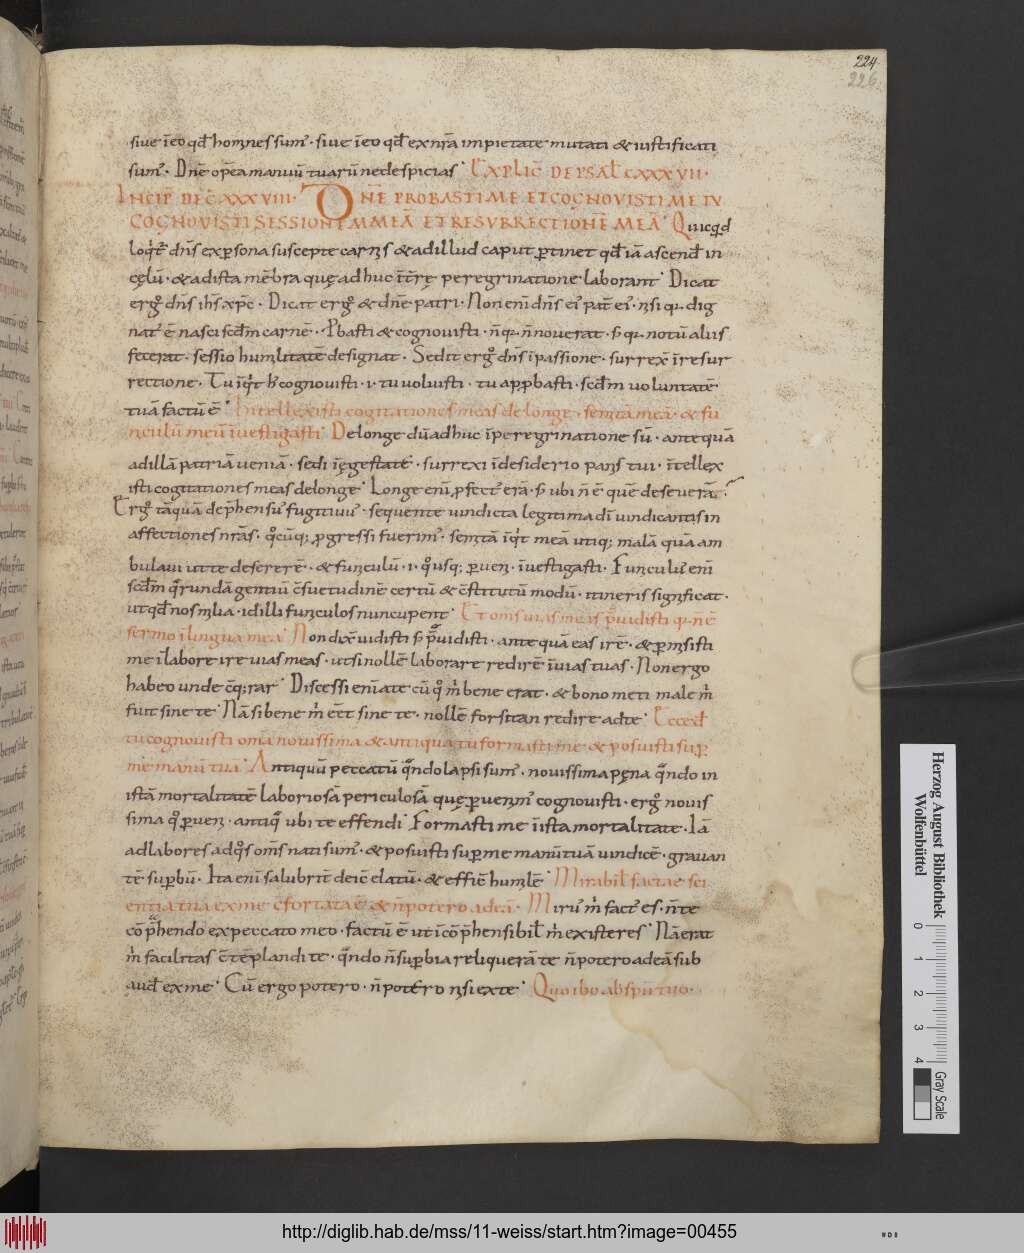 224
226
siue īeo qđ homines sum̄· siue īeo qđ ex nr̄a impietate mutati & iustificati
sum̄· Dn̄e op̄ea manuū tuarū nedespicias· EXPLIC̄ DE PSAL̄ CXXXVII·
INCIP̄ DE C̄XXXVIII· DN̄E PROBASTI ME ET COGNOVISTI ME TV
COGNOVISTI SESSIONEM MEĀ ET RESVRRECTIONĒ MEĀ· Quicqd
loq̇t̄ dn̄s ex p̄sona suscepte carnis & ad illud caput ꝑtinet qđ iā ascend̄ in
cęlū· & ad ista mēbra quę adhuc īt̄rę peregrinatione laborant· Dicat
ergo dn̄s ih̄s xp̄c· Dicat ergo & dn̄e patri· Non enī dn̄s ei' pat̄ ei'· nisi q̄ dig
nat̄ ē nasci scd̄m carnē· Ꝓbasti & cognouisti· n̄ q̄ n̄ nouerat· s; q̄ notū aliis
fecerat· sessio humilitatē designat· Sedit ergo dn̄s ī passione· surrex̄ ī resur
rectione· Tu īq̇t h̄ cognouisti· i· tu uoluisti· tu apꝓbasti· scd̄m uoluntatē
tuā factū ē· Intellexisti cogitationes meas de longe· semitā meā· & fu
niculū meū īuestigasti· De longe dū adhuc ī peregrinatione sū· antequā
ad illā patriā ueniā· sedi ī ęgestatē· surrexi ī desiderio panis tui· ītellex
isti cogitationes meas delonge· Longe enī ꝓfect' erā· s; ubi n̄ ē quē deseuerā·
Ergo tāquā dep̄hensu' fugitiuu'· sequente uindicta legitima dī uindicantis in
affectiones nr̄as· q̊cūq; ꝓgressi fuerim'· semitā īq̇t meā utiq; malā quā am
bulaui ut te desererē· & funiculū· i· q̊usq; ꝑueni· īuestigasti· Funiculu' enī
scd̄m q̄rundā gentiū c̄suetudinē certū & c̄stitutū modū· itineris significat·
ut qđ nos milia· id illi funiculos nuncupent· Et om̄s uias meas p̄uidisti q̄ n̄ ē
sermo ī lingua mea· Non dix̄ uidisti s; p̄uidisti· ante quā eas irē· & ꝑmisisti
me ī labore ire uias meas· ut si nollē laborare redirē ī uias tuas· Non ergo
habeo unde c̄q;rar'· Discessi enī a te cū q̊ m̄ bene erat· & bono meti male m̄
fuit sine te· Nā si bene m̄ ēēt sine te· nollē forsitan redire ad te· Ecce d̄
tu cognouisti om̄a nouissima & antiqua tu formasti me & posuisti sup̄
mē manū tua· Antiquū peccatū q̄ndo lapsi sum'· nouissima pęna q̄ndo in
istā mortalitatē laboriosā periculosā quę ꝑuenim' cognouisti· ergo nouis
sima q̊ ꝑueni· antiq̄ ubi te effendi· Formasti me ī ista mortalitate· Iā
ad labores ad q̊s om̄s nati sum'· & posuisti sup̄ me manū tuā uindicē· grauan
tē sup̄bū· Ita enī salubrit̄ deic̄ elatū· & effic̄ humilē· Mirabil̄ facta ē sci
entia tua ex me c̄fortata ē & n̄ potero ad eā· Miru' m̄ fact' es· n̄ te
cōp̄hendo ex peccato meo· factū ē ut īcōp̄hensibil̄ m̄ existeres· Nā erat
m̄ facilitas c̄tēplandi te· q̄ndo n̄ sup̄bia reliquerā te n̄ potero ad eā sub
aud̄ ex me· Cū ergo potero· n̄ potero nisi ex te· Quo ibo ab spū tuo·
Herzog August Bibliothek
Wolfenbüttel
0 1 2 3 4
Gray Scale
http://diglib.hab.de/mss/11-weiss/start.htm?image=00455